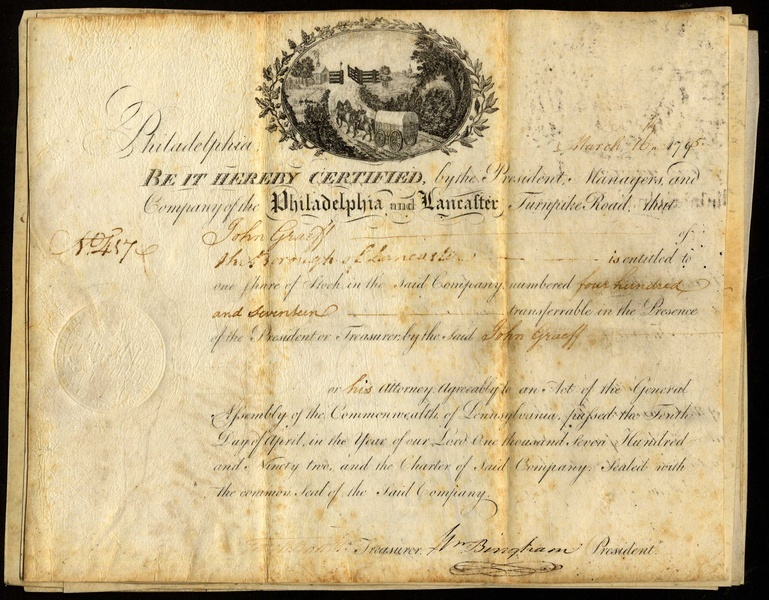 Philadelphia, March 16th 1795
BE IT HEREBY CERTIFIED, by the President, Managers, and
Company of the Philadelphia and Lancaster Turnpike Road, that
No. 417 John Graeff of
the Borough of Lancaster is entitled to
one share of Stock in the Said Company numbered four hundred
and seventeen transferrable in the Presence
of the President or Treasurer, by the Said John Graeff
or his Attorney Agreeably to an Act of the General
Assembly of the Commonwealth of Pennsylvania, passed the Ninth
Day of April, in the Year of our Lord One thousand Seven Hundred
and Ninety two, and the Charter of Said Company. Sealed with
the common Seal of the Said Company.
Treasurer. Wm Bingham President.